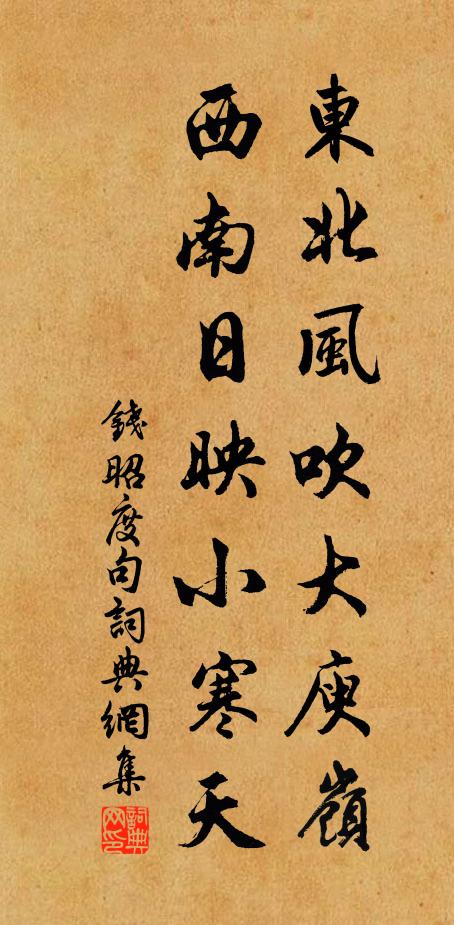 東北風吹大庾嶺
西南日映小寒天
錢昭度句詞典網集
詞典網印